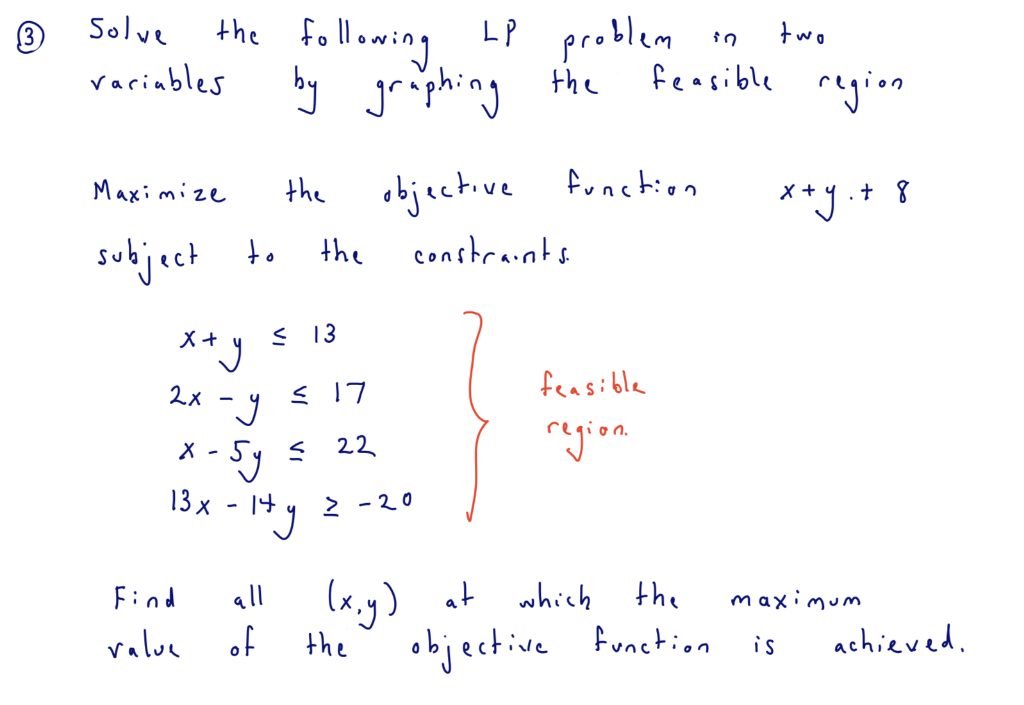 ③ Solve the following LP problem in two
variables by graphing the feasible region
Maximize the objective function x+y.+ 8
subject to the constraints.
x+y ≤ 13
2x - y ≤ 17
x - 5y ≤ 22
13x - 14y ≥ -20
feasible
region.
Find all (x,y) at which the maximum
value of the objective function is achieved.